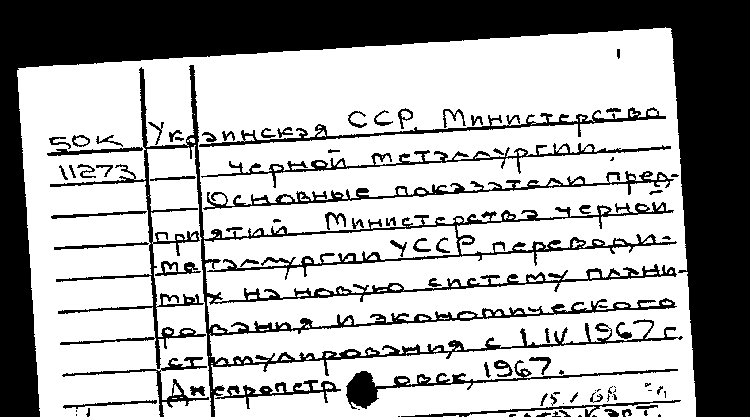 50К Украинская ССР. Министерство
11273 черной металлургии.
Основные показатели пред-
приятий Министерства черной
металлургии УССР, переводи-
мых на новую систему плани-
рования и экономического
стимулирования с 1.IV.1967 г.
Днепропетровск, 1967.
15.1.68